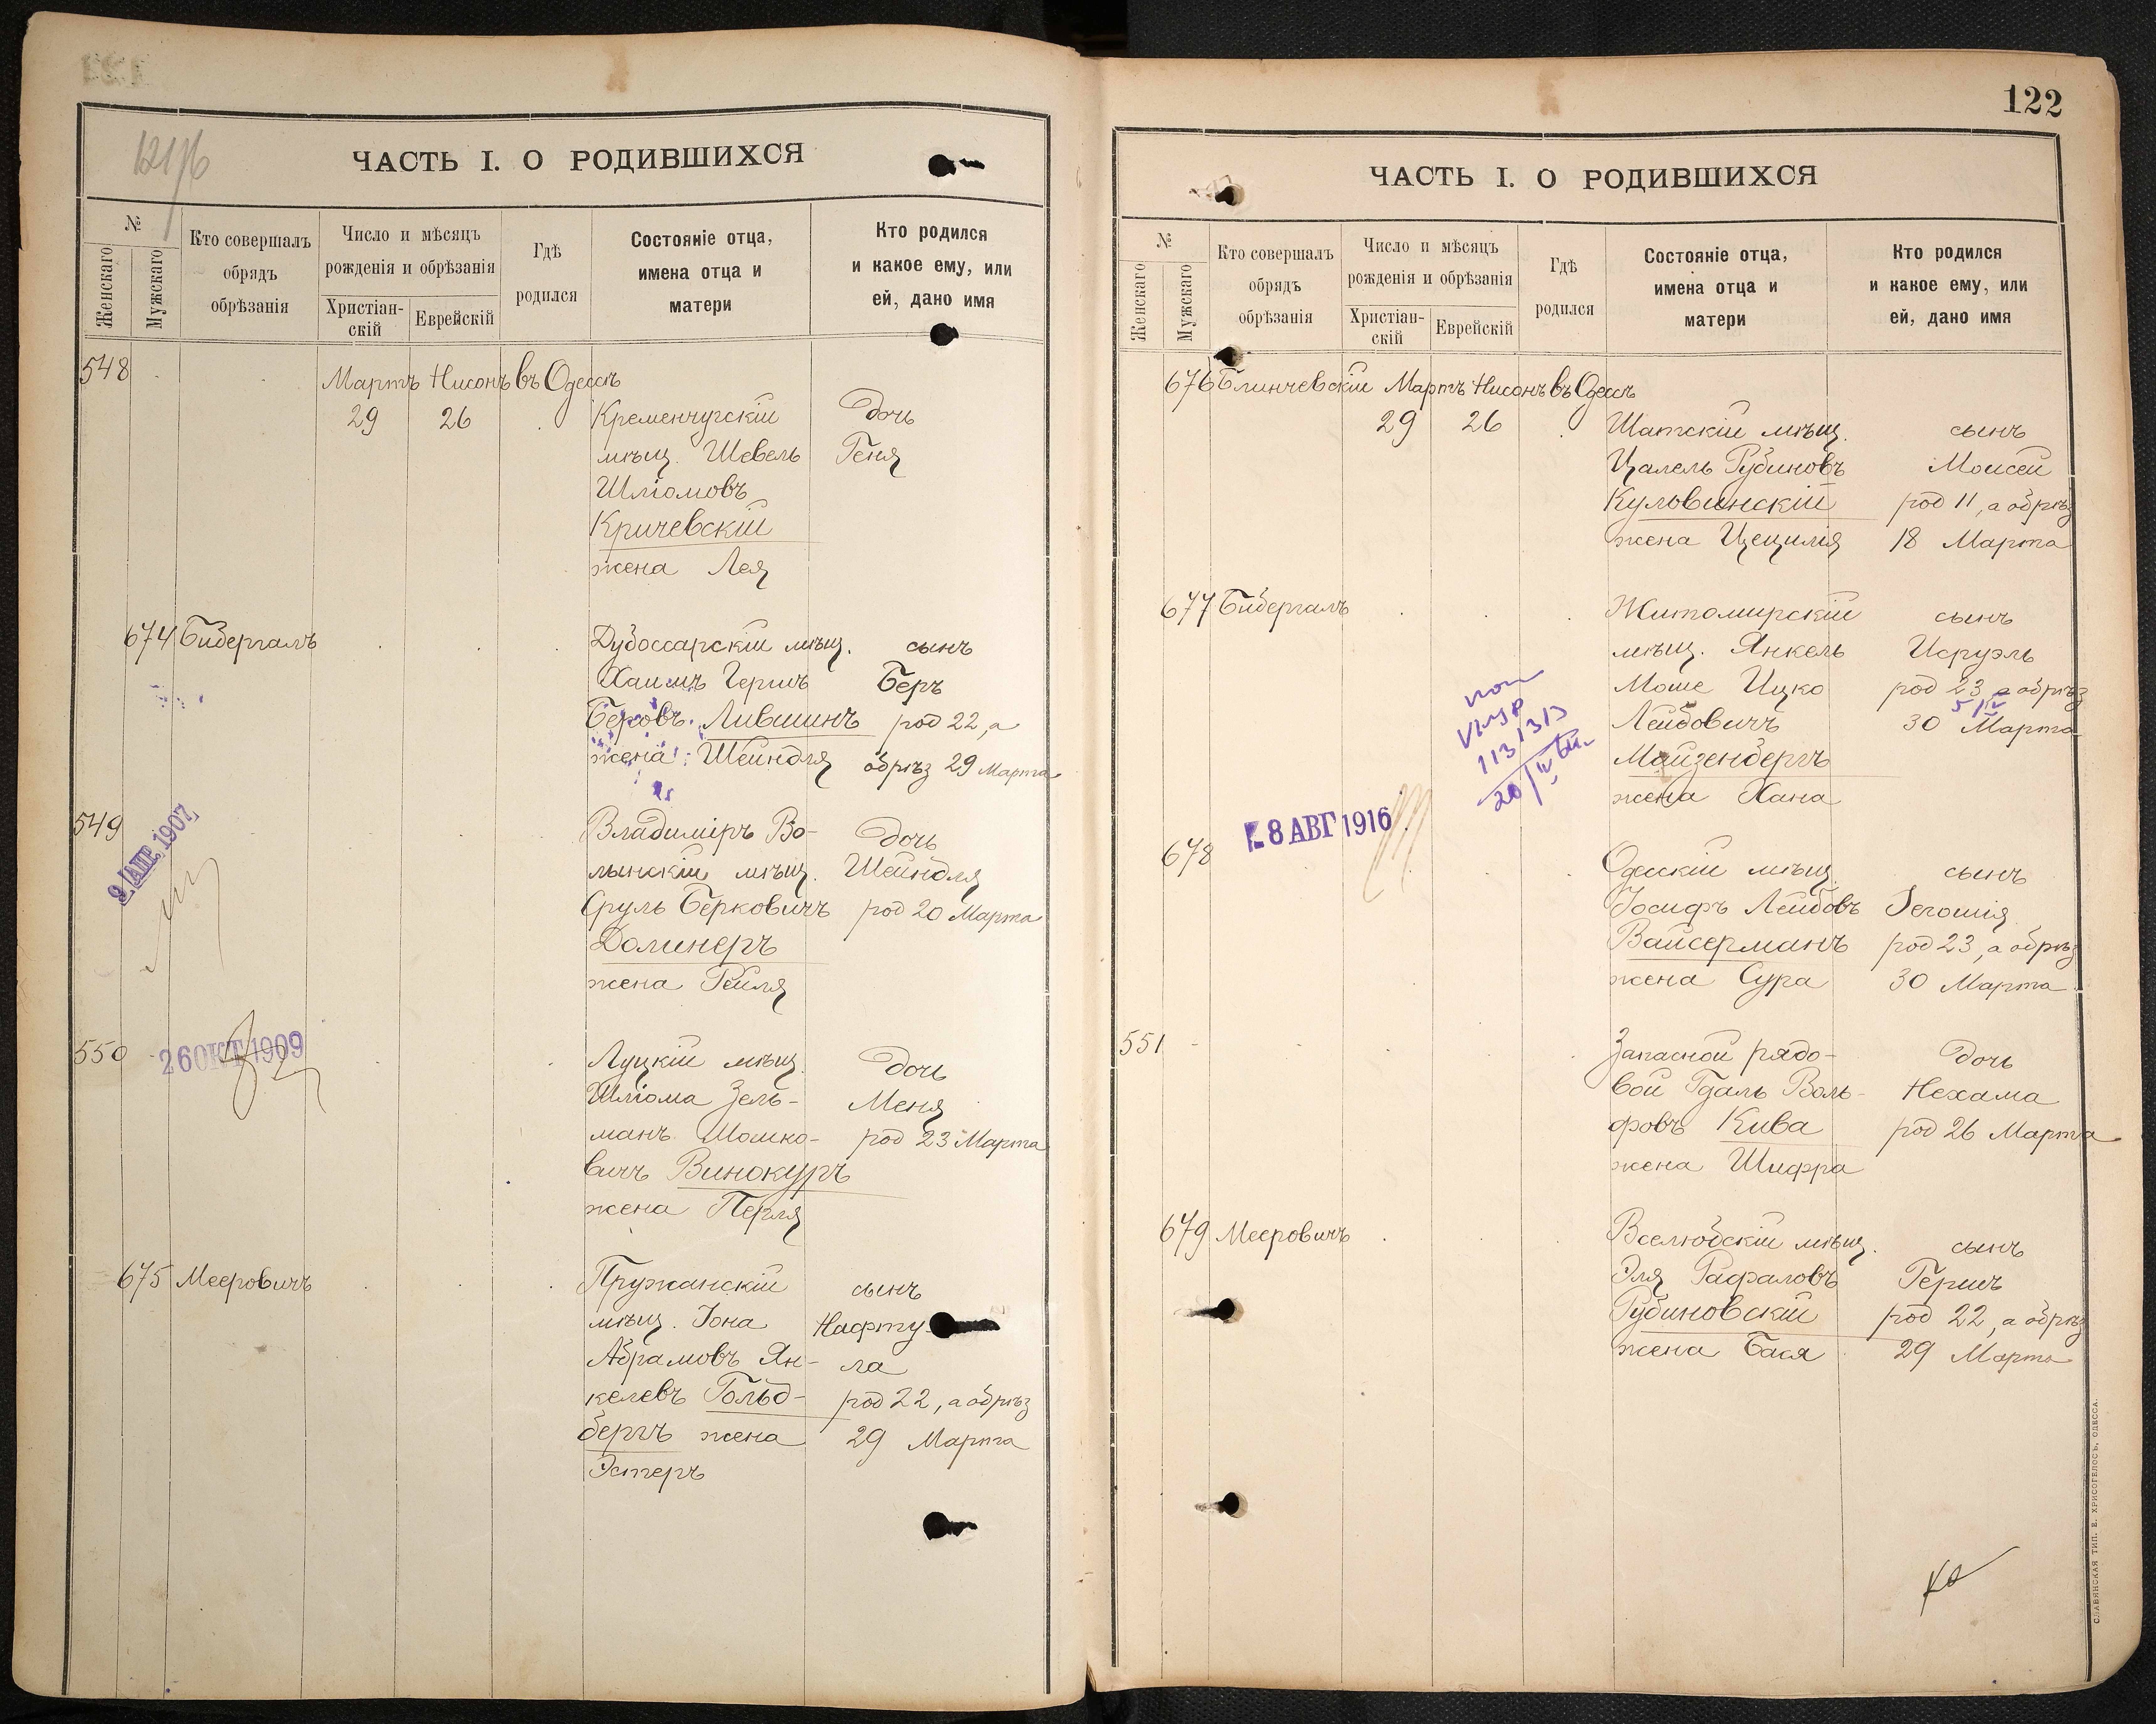 121/б
ЧАСТЬ I. О РОДИВШИХСЯ
№
Женскаго
Мужскаго
Кто совершалъ
обрядъ
обрѣзанія
Число и мѣсяцъ
рожденія и обрѣзанія
Христіан-
скій
Еврейскій
Гдѣ
родился
Состояніе отца,
имена отца и
матери
Кто родился
и какое ему, или
ей, дано имя
548
Мартъ Нисонъ въ Одессѣ
29 26 Кременчугскій дочь
мѣщ. Шевель Геня
Шліомовъ
Кричевскій
жена Лея
674 Бибергалъ Дубоссарскій мѣщ. сынъ
Хаимъ Гершъ Беръ
Беровъ Лившинъ род 22, а
жена Шейндля обрѣз 29 Марта
549 Владиміръ Во- дочь
9 АПР. 1907
лынскій мѣщ. Шейндля
Сруль Берковичъ род 20 Марта
Долинеръ
жена Рейля
550 26 ОКТ 1909 Луцкій мѣщ. дочь
Шліома Зель- Меня
манъ Мошко- род 23 Марта
вичъ Винокуръ
жена Перля
675 Мееровичъ Пружанскій сынъ
мѣщ. Іона Нафту-
Абрамовъ Ян- ла
келевъ Гольд- род 22, а обрѣз
бергъ жена 29 Марта
Эстеръ
122
ЧАСТЬ I. О РОДИВШИХСЯ
№
Женскаго
Мужскаго
Кто совершалъ
обрядъ
обрѣзанія
Число и мѣсяцъ
рожденія и обрѣзанія
Христіан-
скій
Еврейскій
Гдѣ
родился
Состояніе отца,
имена отца и
матери
Кто родился
и какое ему, или
ей, дано имя
676 Блинчевскій Мартъ Нисонъ въ Одессѣ
29 26 Шатскій мѣщ. сынъ
Цалель Рубиновъ Моисей
Куловинскій род 11, а обрѣз
жена Цецилія 18 Марта
677 Бибергалъ Житомирскій сынъ
мѣщ. Янкель Исруэль
Моше Ицко род 23 а обрѣз
Лейбовичъ 30 Марта
Майзенбергъ
жена Хана
8 АВГ 1916
678 Одесскій мѣщ. сынъ
Іосифъ Лейбовъ Іегошія
Вайсерманъ род 23, а обрѣз
жена Сура 30 Марта
551 Запасной рядо- дочь
вой Гдаль Воль- Нехама
фовъ Кива род 26 Марта
жена Шифра
679 Мееровичъ Вселюбскій мѣщ. сынъ
Эля Рафаловъ Гершъ
Рубиновскій род 22, а обрѣз
жена Бася 29 Марта
СЛАВЯНСКАЯ ТИП. Е. ХРИСОГЕЛОСЪ, ОДЕССА.